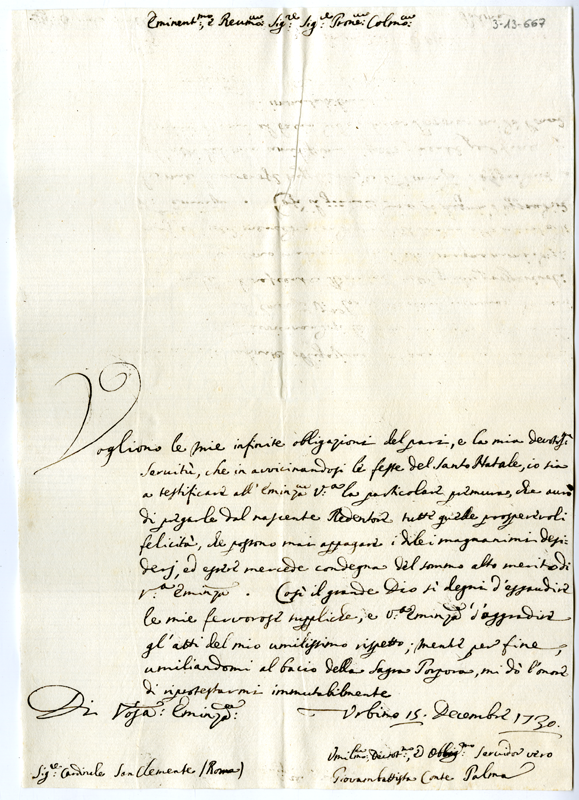 3-13-667
Eminent.mo, e Reu.mo Sig.re Sig.re Prone. Colmo.
Vogliono le mie infinite obligazioni del pari, e la mia deuotis.
Seruitù, che in avvicinandosi le feste del Santo Natale, io sia
a testificare all'Eminza V.a la particolare premura, che aurò
di pregarle dal nascente Redentore tutte quelle prosperevoli
felicità, che possono mai appagare i di lei magnanimi desi-
derj, ed essere mercede condegna del sommo alto merito di
V.a Eminza. Così il grande Dio si degni d'essaudire
le mie fervorose suppliche, e V.a Eminza d'aggradire
gl'atti del mio umilissimo rispetto; mentre per fine,
umiliandomi al bacio della Sagra Porpora, mi dò l'onore
di riprotestarmi immutabilmente
Di Vosa. Eminza. Urbino 15. Decembre 1730.
Umilmo. Deuotmo., ed Obligmo. Seruidor vero
Sig.re Cardinale San Clemente (Roma) Giovambattista Conte Palma